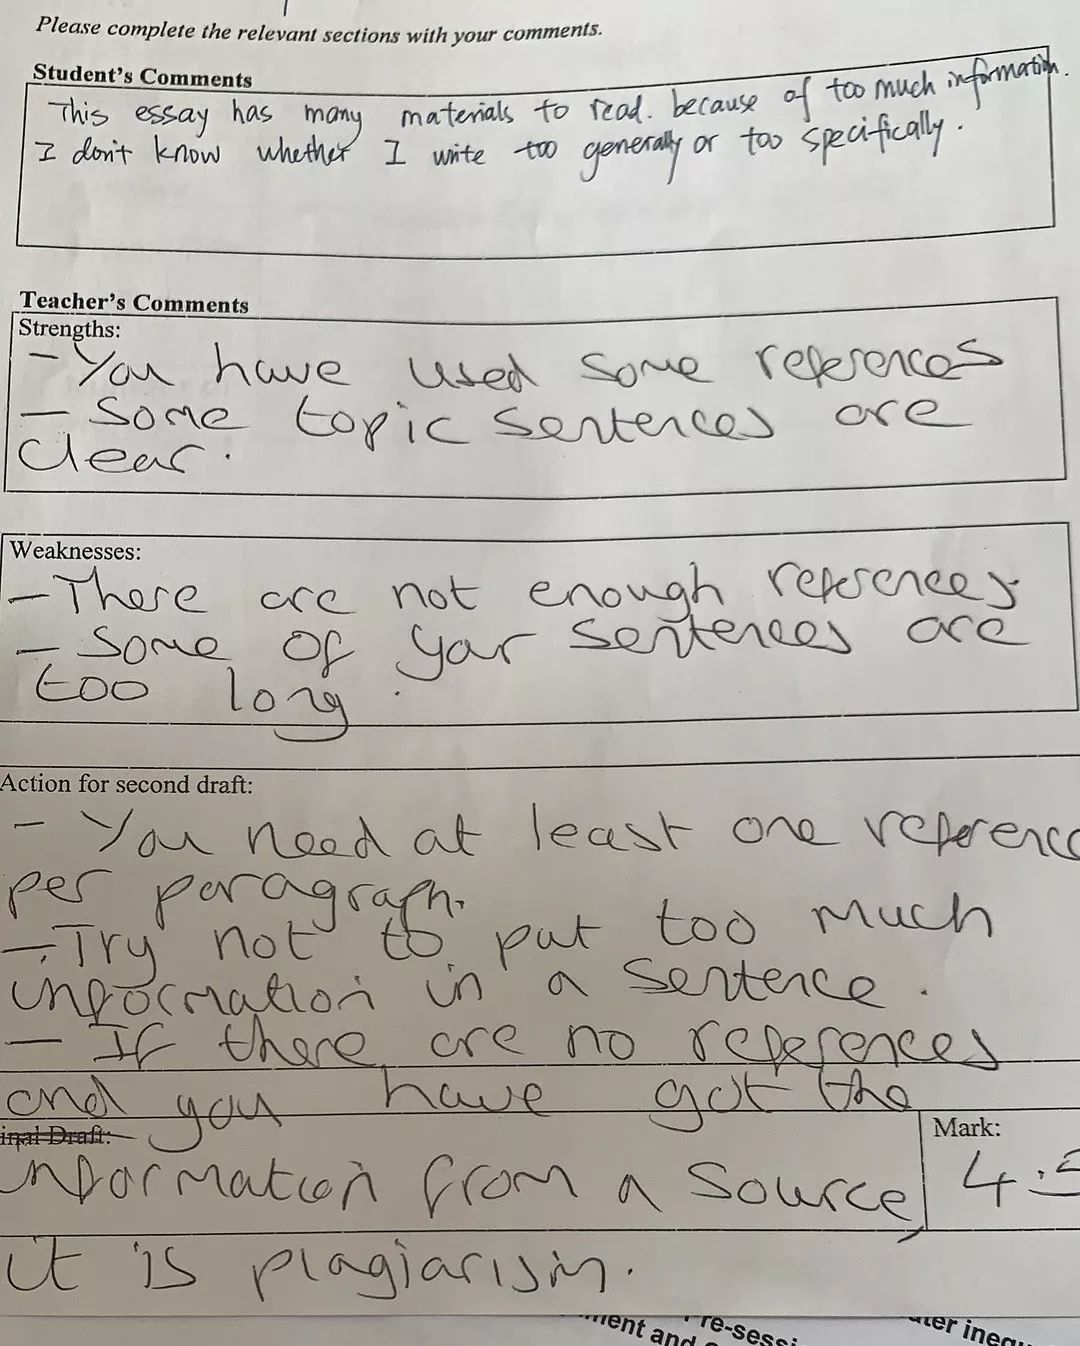 Please complete the relevant sections with your comments.
Student's Comments
This essay has many materials to read. because of too much information.
I don't know whether I write too generally or too specifically.
Teacher's Comments
Strengths:
- You have used some references
- Some topic sentences are
clear.
Weaknesses:
- There are not enough references
- Some of your sentences are
too long.
Action for second draft:
- You need at least one reference
per paragraph.
- Try not to put too much
information in a sentence.
- If there are no references
and you have got the
inal Draft:
Mark:
information from a source,
4.5
it is plagiarism.